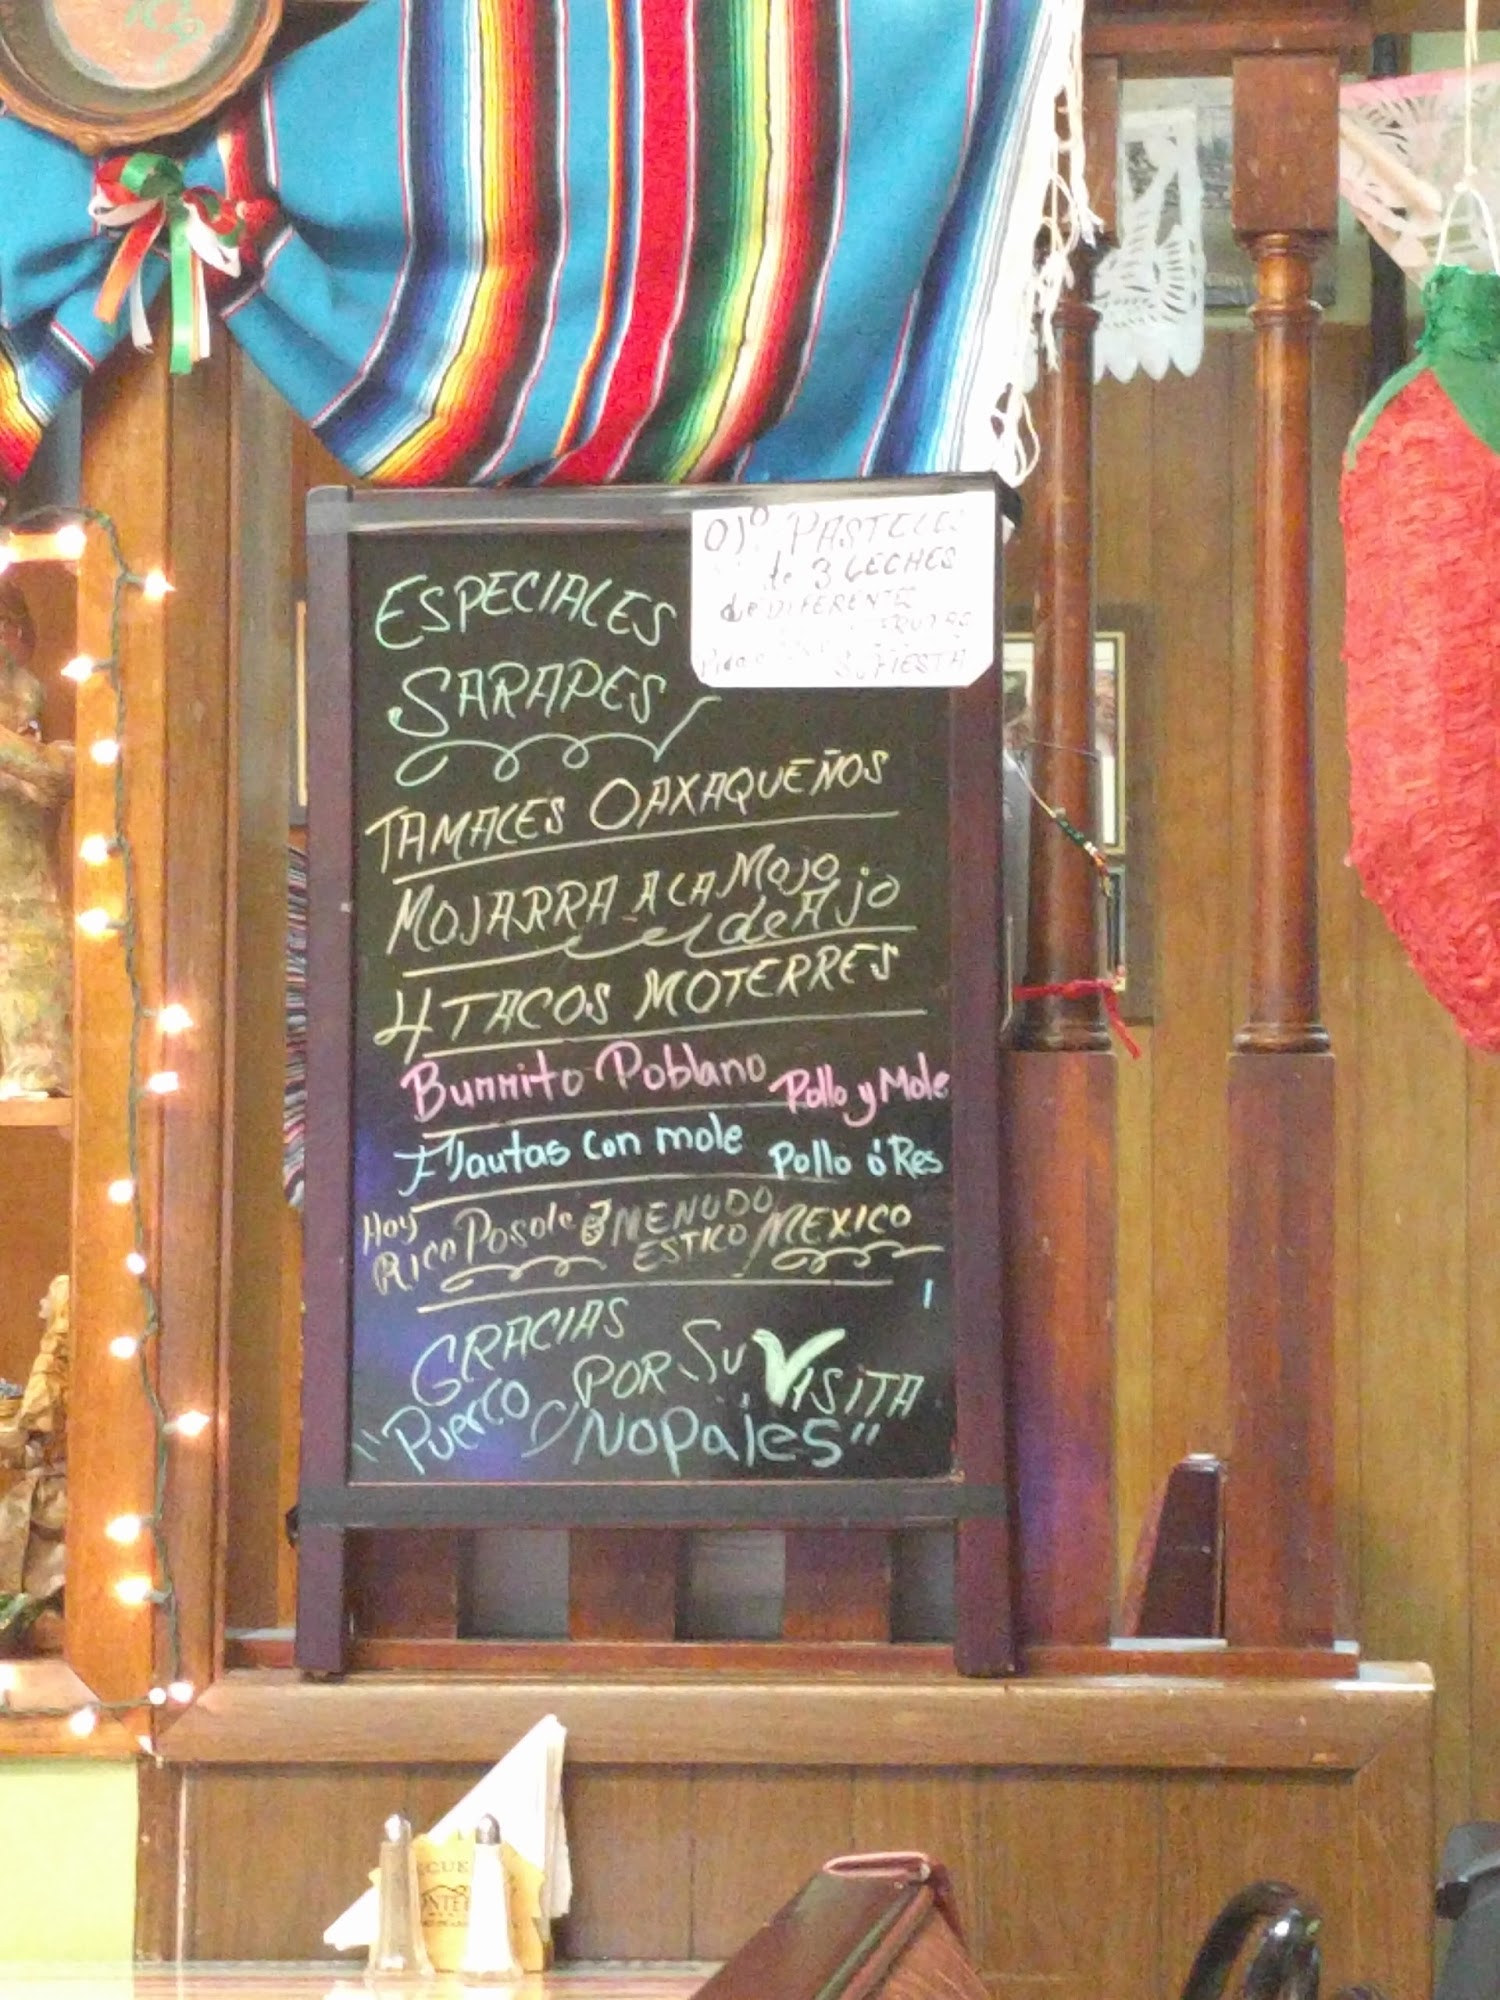 ESPECIALES
SARAPES
OJO PASTELES
de 3 LECHES
de DIFERENTE
FRUTAS
SU FIESTA
TAMALES OAXAQUEÑOS
MOJARRA A LA MOJO
de AJO
4 TACOS MOTERRES
Burrito Poblano Pollo y Mole
Flautas con mole Pollo ó Res
Hoy
Rico Posole MENUDO
ESTILO MEXICO
GRACIAS
POR SU VISITA
"Puerco C/ Nopales"
CUE